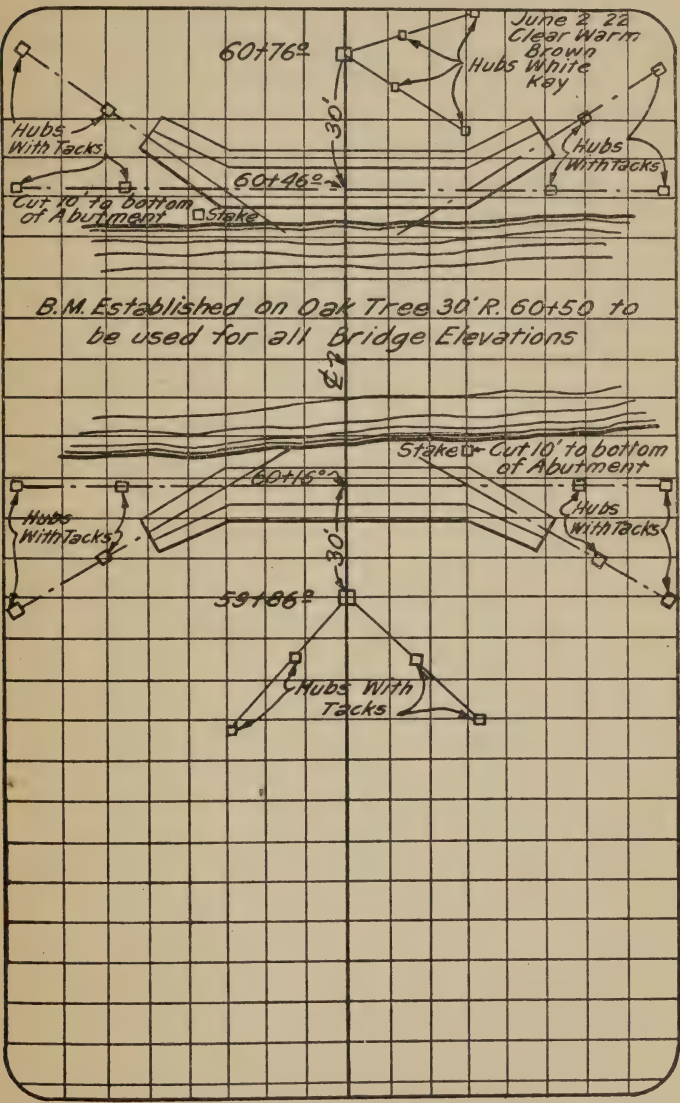 June 2 22
Clear Warm
Brown
White
Kay
60+76º
Hubs
30'
Hubs
With Tacks
Hubs
With Tacks
60+46º
Cut 10' to bottom
of Abutment
Stake
B.M. Established on Oak Tree 30' R. 60+50 to
be used for all Bridge Elevations
℄
Stake
Cut 10' to bottom
of Abutment
60+16º
Hubs
With Tacks
Hubs
With Tacks
30'
59+86º
Hubs With
Tacks